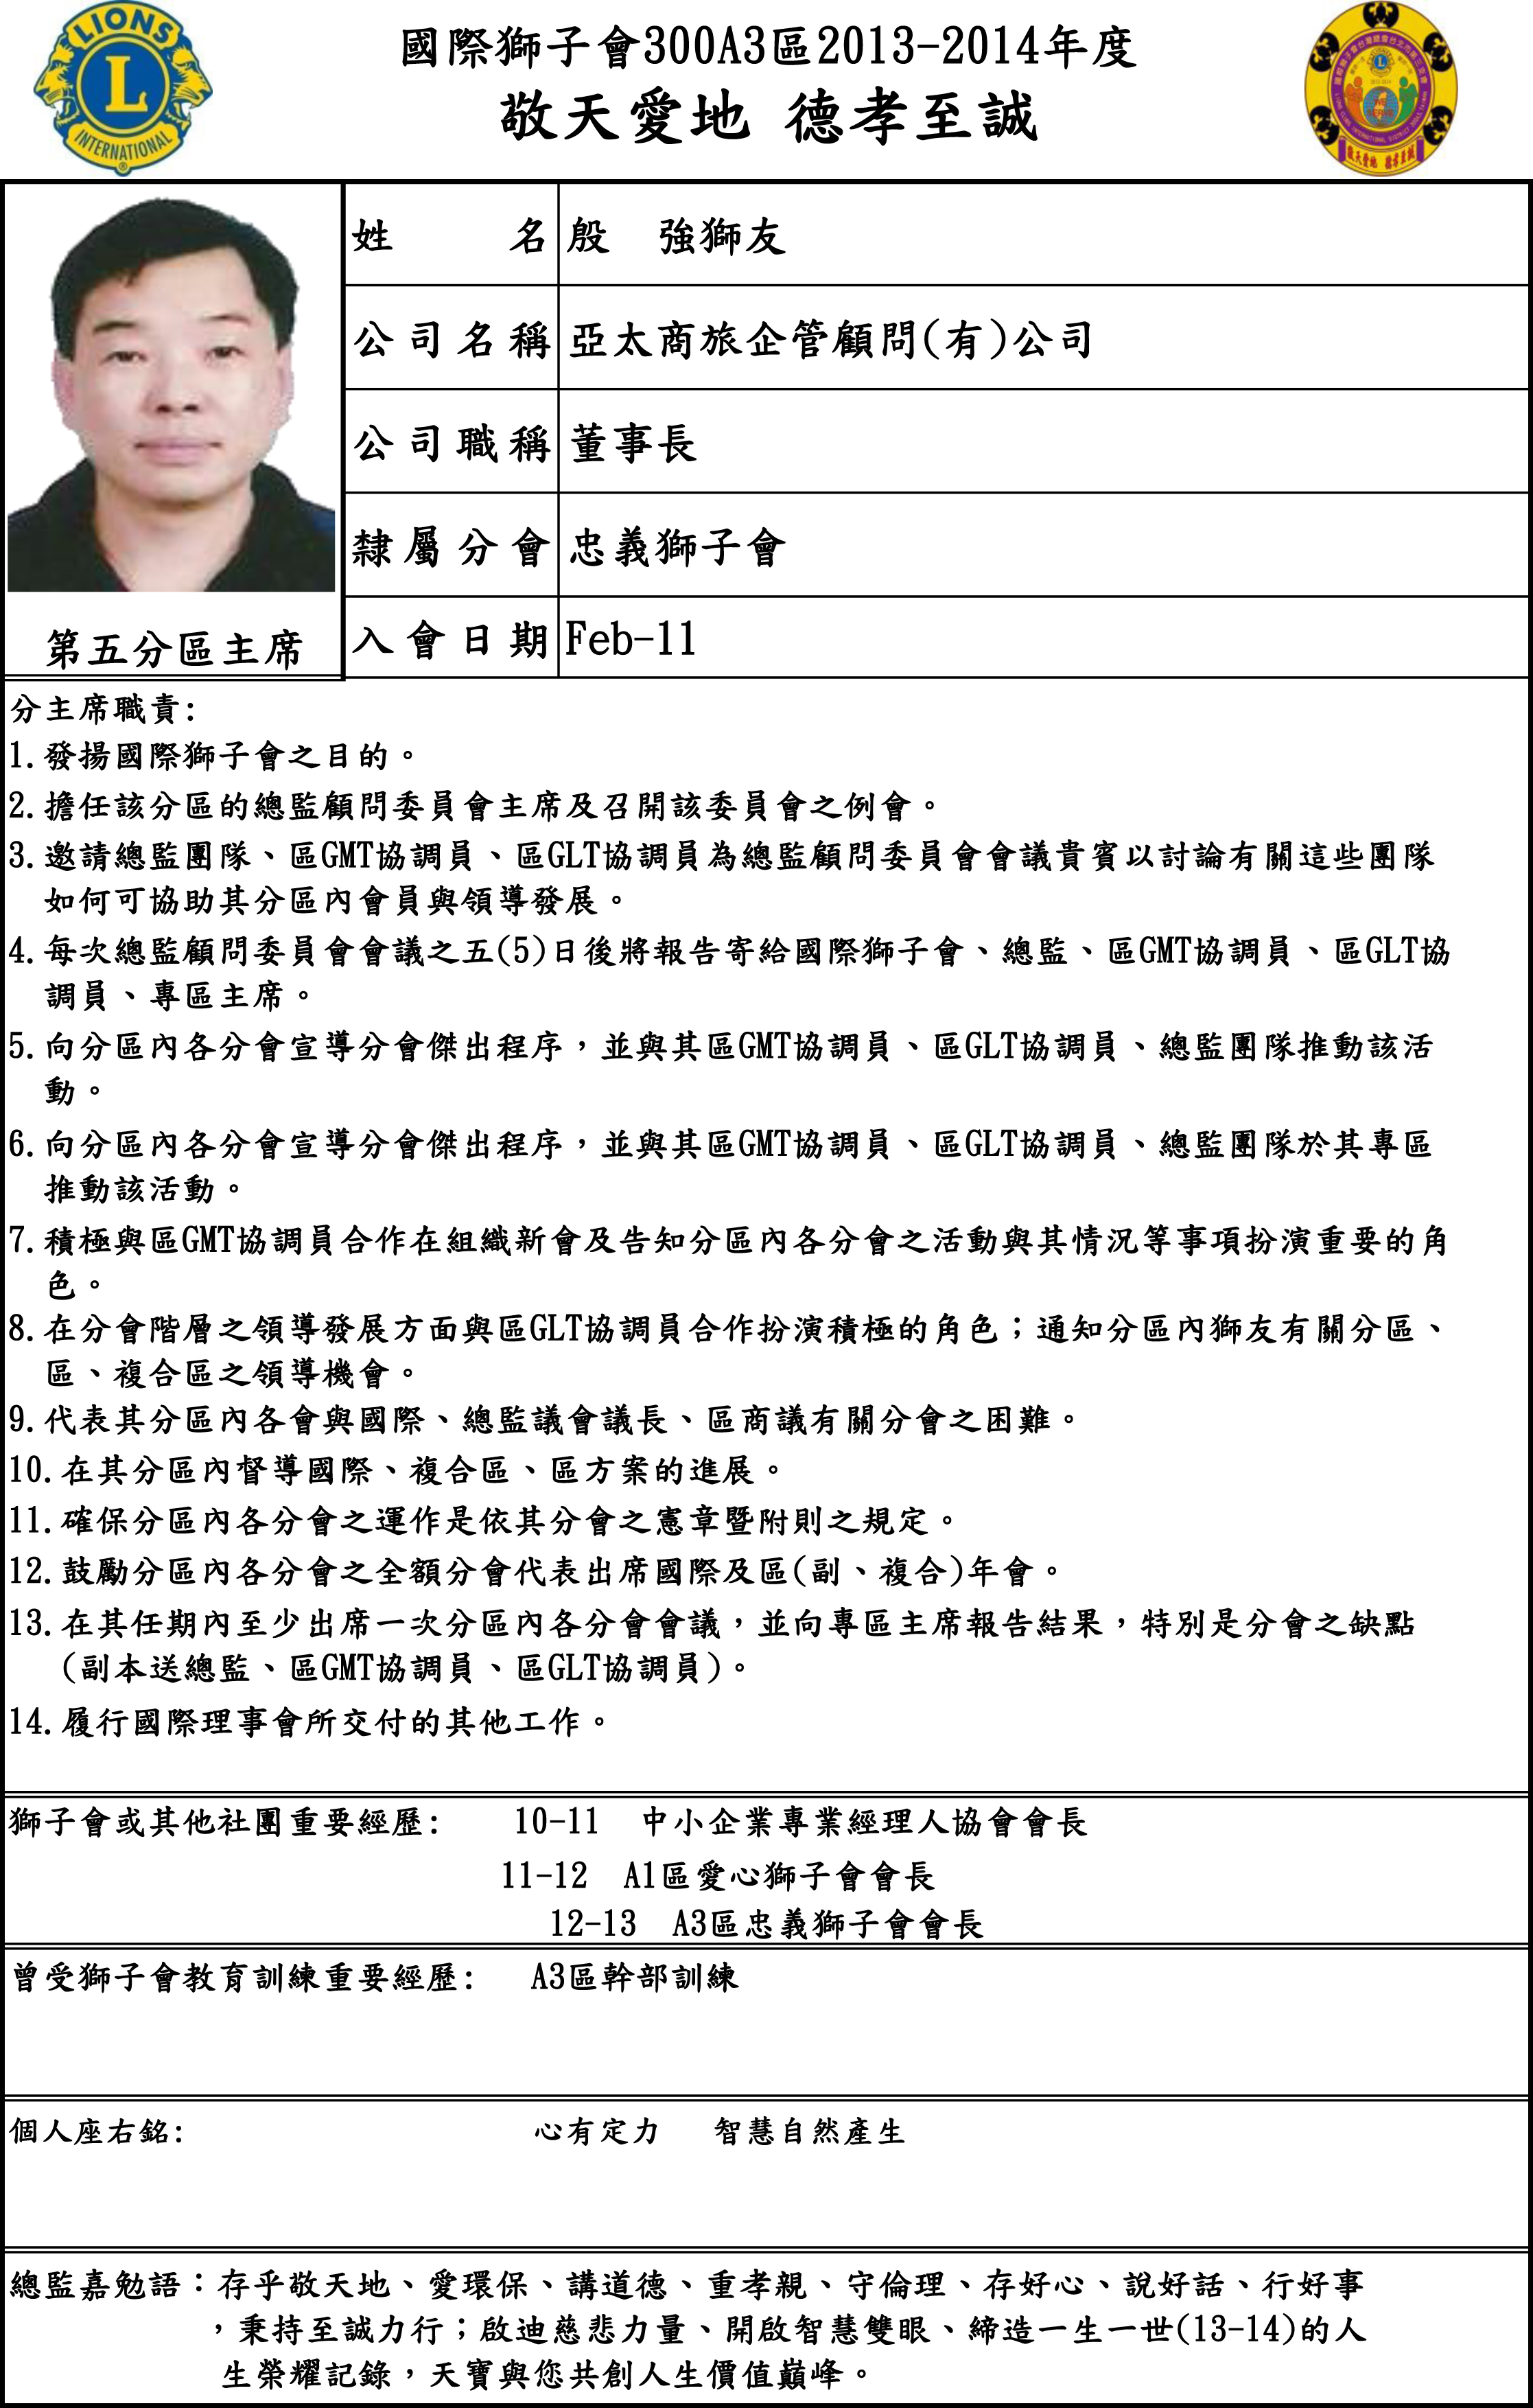 LIONS
L
INTERNATIONAL
®
國際獅子會300A3區2013-2014年度
敬天愛地 德孝至誠
敬天愛地 德孝至誠
姓 名 殷 強獅友
公司名稱 亞太商旅企管顧問(有)公司
公司職稱 董事長
隸屬分會 忠義獅子會
第五分區主席
入會日期 Feb-11
分主席職責:
1.發揚國際獅子會之目的。
2.擔任該分區的總監顧問委員會主席及召開該委員會之例會。
3.邀請總監團隊、區GMT協調員、區GLT協調員為總監顧問委員會會議貴賓以討論有關這些團隊
如何可協助其分區內會員與領導發展。
4.每次總監顧問委員會會議之五(5)日後將報告寄給國際獅子會、總監、區GMT協調員、區GLT協
調員、專區主席。
5.向分區內各分會宣導分會傑出程序，並與其區GMT協調員、區GLT協調員、總監團隊推動該活
動。
6.向分區內各分會宣導分會傑出程序，並與其區GMT協調員、區GLT協調員、總監團隊於其專區
推動該活動。
7.積極與區GMT協調員合作在組織新會及告知分區內各分會之活動與其情況等事項扮演重要的角
色。
8.在分會階層之領導發展方面與區GLT協調員合作扮演積極的角色；通知分區內獅友有關分區、
區、複合區之領導機會。
9.代表其分區內各會與國際、總監議會議長、區商議有關分會之困難。
10.在其分區內督導國際、複合區、區方案的進展。
11.確保分區內各分會之運作是依其分會之憲章暨附則之規定。
12.鼓勵分區內各分會之全額分會代表出席國際及區(副、複合)年會。
13.在其任期內至少出席一次分區內各分會會議，並向專區主席報告結果，特別是分會之缺點
(副本送總監、區GMT協調員、區GLT協調員)。
14.履行國際理事會所交付的其他工作。
獅子會或其他社團重要經歷: 10-11 中小企業專業經理人協會會長
11-12 A1區愛心獅子會會長
12-13 A3區忠義獅子會會長
曾受獅子會教育訓練重要經歷: A3區幹部訓練
個人座右銘: 心有定力 智慧自然產生
總監嘉勉語：存乎敬天地、愛環保、講道德、重孝親、守倫理、存好心、說好話、行好事
，秉持至誠力行；啟迪慈悲力量、開啟智慧雙眼、締造一生一世(13-14)的人
生榮耀記錄，天寶與您共創人生價值巔峰。